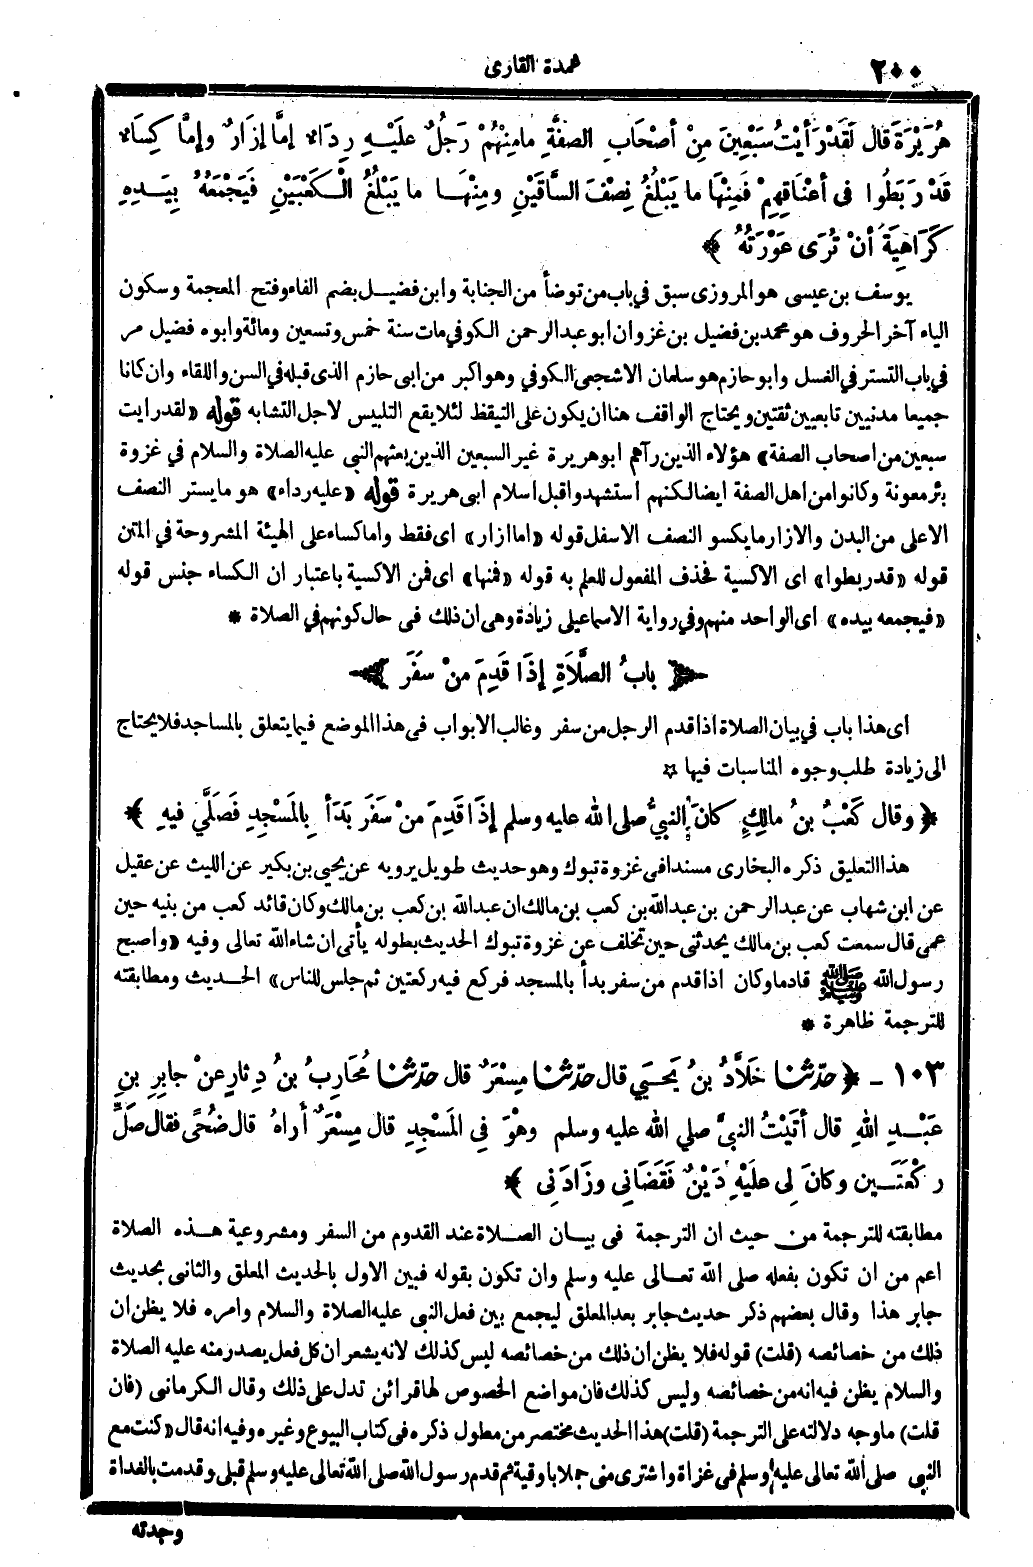 ٢٠٠
عمدة القارى
هُرَيْرَةَ قال لَقَدْ رَأَيْتُ سَبْعِينَ مِنْ أصْحَابِ الصفَّةِ مامِنْهُمْ رَجُلٌ علَيْهِ رِدَاء إمَّا إزَارٌ وإمَّا كِسَاء
قَدْ رَبَطُوا فى أعْنَاقِهِمْ فَمِنْهَا ما يَبْلُغُ نِصْفَ السَّاقَيْنِ ومِنْهَا ما يَبْلُغُ الْكَعْبَيْنِ فَيَجْمَعُهُ بِيَدِهِ
كَرَاهِيَةَ أنْ تُرَى عَوْرَتُهُ ﴾
يوسف بن عيسى هو المروزى سبق فى باب من توضأ من الجنابة وابن فضيل بضم الفاء وفتح المعجمة وسكون
الياء آخر الحروف هو محمد بن فضيل بن غزوان ابو عبد الرحمن الكوفى مات سنة خمس وتسعين ومائة وابوه فضيل مر
فى باب التستر فى الغسل وابو حازم هو سلمان الاشجعى الكوفى وهو اكبر من ابى حازم الذى قبله فى السن واللقاء وان كانا
جميعا مدنيين تابعيين ثقتين ويحتاج الواقف هنا ان يكون على التيقظ لئلا يقع التلبيس لاجل التشابه قوله «لقد رايت
سبعين من اصحاب الصفة» هؤلاء الذين رآهم ابو هريرة غير السبعين الذين بعثهم النبى عليه الصلاة والسلام فى غزوة
بئر معونة وكانوا من اهل الصفة ايضا لكنهم استشهدوا قبل اسلام ابى هريرة قوله «عليه رداء» هو ما يستر النصف
الاعلى من البدن والازار ما يكسو النصف الاسفل قوله «اما ازار» اى فقط واما كساء على الهيئة المشروحة فى المتن
قوله «قد ربطوا» اى الاكسية فحذف المفعول للعلم به قوله «فمنها» اى فمن الاكسية باعتبار ان الكساء جنس قوله
«فيجمعه بيده» اى الواحد منهم وفى رواية الاسماعيلى زيادة وهى ان ذلك فى حال كونهم فى الصلاة *
بابُ الصَّلاَةِ إذَا قَدِمَ مِنْ سَفَرٍ
اى هذا باب فى بيان الصلاة اذا قدم الرجل من سفر وغالب الابواب فى هذا الموضع فيما يتعلق بالمساجد فلا يحتاج
الى زيادة طلب وجوه المناسبات فيها ☆
﴿ وقال كَعْبُ بنُ مالِكٍ كانَ النبيُّ صلى الله عليه وسلم إذَا قَدِمَ مِنْ سَفَرٍ بَدَأَ بِالمَسْجِدِ فَصَلَّى فيهِ ﴾
هذا التعليق ذكره البخارى مسندا فى غزوة تبوك وهو حديث طويل يرويه عن يحيى بن بكير عن الليث عن عقيل
عن ابن شهاب عن عبد الرحمن بن عبد الله بن كعب بن مالك ان عبد الله بن كعب بن مالك وكان قائد كعب من بنيه حين
عمى قال سمعت كعب بن مالك يحدثنى حين تخلف عن غزوة تبوك الحديث بطوله يأتى ان شاء الله تعالى وفيه «واصبح
رسول الله ﷺ قادما وكان اذا قدم من سفر بدأ بالمسجد فركع فيه ركعتين ثم جلس للناس» الحديث ومطابقته
للترجمة ظاهرة *
١٠٣ - ﴿ حدّثنا خَلاَّدُ بنُ يَحيى قال حدّثنا مِسْعَرٌ قال حدّثنا مُحَارِبُ بنُ دِثارٍ عنْ جابِرِ بنِ
عَبْدِ اللهِ قال أتَيْتُ النبيَّ صلى الله عليه وسلم وهُوَ فِى المَسْجِدِ قال مِسْعَرٌ أراهُ قال ضُحًى فقال صَلِّ
رَكْعَتَيْنِ وكانَ لِى علَيْهِ دَيْنٌ فَقَضَانِى وزَادَنِى ﴾
مطابقته للترجمة من حيث ان الترجمة فى بيان الصلاة عند القدوم من السفر ومشروعية هذه الصلاة
اعم من ان تكون بفعله صلى الله تعالى عليه وسلم وان تكون بقوله فبين الاول بالحديث المعلق والثانى بحديث
جابر هذا وقال بعضهم ذكر حديث جابر بعد المعلق ليجمع بين فعل النبى عليه الصلاة والسلام وامره فلا يظن ان
ذلك من خصائصه (قلت) قوله فلا يظن ان ذلك من خصائصه ليس كذلك لانه يشعر ان كل فعل يصدر منه عليه الصلاة
والسلام يظن فيه انه من خصائصه وليس كذلك فان مواضع الخصوص لها قرائن تدل على ذلك وقال الكرمانى (فان
قلت) ما وجه دلالته على الترجمة (قلت) هذا الحديث مختصر من مطول ذكره فى كتاب البيوع وغيره وفيه انه قال «كنت مع
النبى صلى الله تعالى عليه وسلم فى غزاة واشترى منى جملا باوقية ثم قدم رسول الله صلى الله تعالى عليه وسلم قبلى وقدمت بالغداة
وجدته